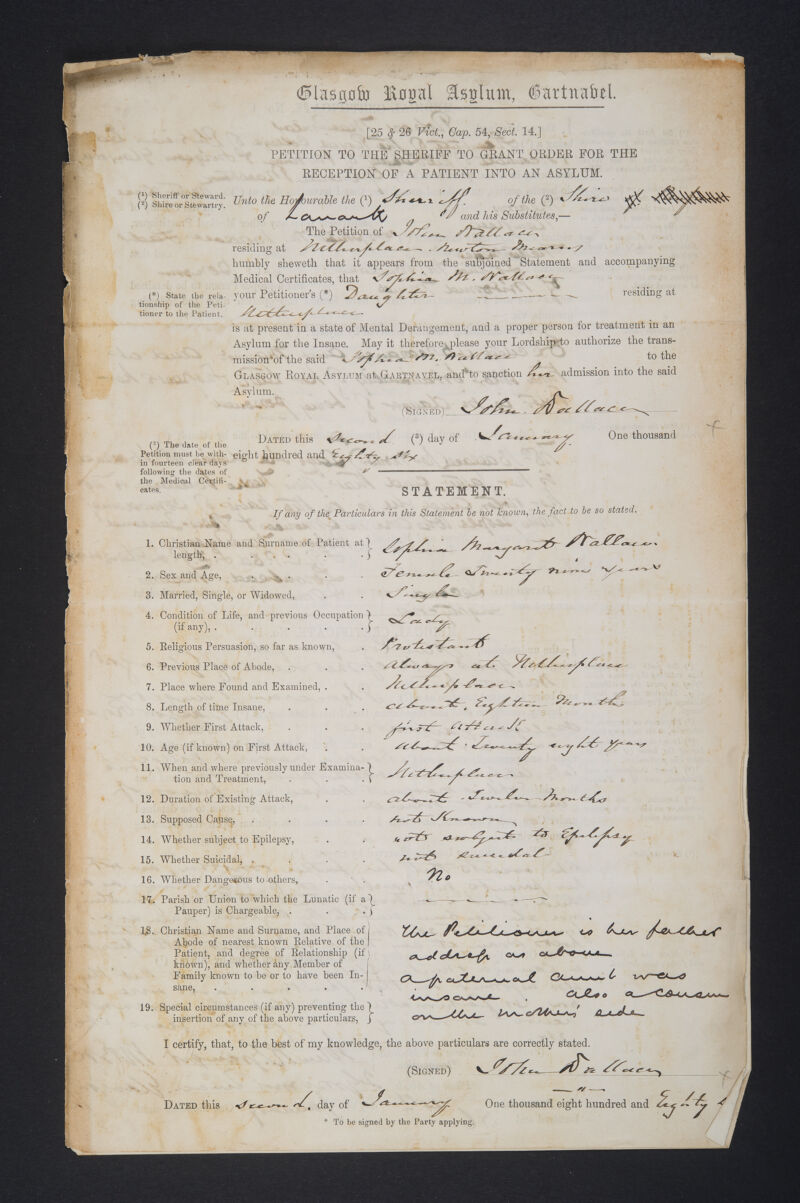 Glasgow Royal Asylum, Gartnavel.
[25 & 26 Vict., Cap. 54, Sect. 14.]
PETITION TO THE SHERIFF TO GRANT ORDER FOR THE
RECEPTION OF A PATIENT INTO AN ASYLUM.
(1) Sheriff or Steward.
(2) Shire or Stewartry.
Unto the Honourable the (1) Sherriff. of the (2) Shire
of Lanark and his Substitutes,—
The Petition of John Wallace
residing at Netherplace Newton Mearns
humbly sheweth that it appears from the subjoined Statement and accompanying
Medical Certificates, that Sophia M. Wallace
(*) State the rela-
tionship of the Peti-
tioner to the Patient.
your Petitioner's (*) Daughter residing at
Netherplace
is at present in a state of Mental Derangement, and a proper person for treatment in an
Asylum for the Insane. May it therefore please your Lordship to authorize the trans-
mission of the said Sophia M. Wallace to the
GLASGOW ROYAL ASYLUM at GARTNAVEL, and to sanction her admission into the said
Asylum.
(SIGNED) John Wallace
(3) The date of the
Petition must be with-
in fourteen clear days
following the dates of
the Medical Certifi-
cates.
DATED this Second (3) day of January One thousand
eight hundred and Eighty Six
STATEMENT.
If any of the Particulars in this Statement be not known, the fact to be so stated.
1. Christian Name and Surname of Patient at length, . Sophia Margaret Wallace
2. Sex and Age, Female Twenty nine years
3. Married, Single, or Widowed, Single
4. Condition of Life, and previous Occupation (if any), . Lady
5. Religious Persuasion, so far as known, Protestant
6. Previous Place of Abode, Always at Netherplace
7. Place where Found and Examined, . Netherplace
8. Length of time Insane, about Eighteen Months
9. Whether First Attack, first Attack
10. Age (if known) on First Attack, About Twenty eight years
11. When and where previously under Examina-tion and Treatment, Netherplace
12. Duration of Existing Attack, about Twelve Months
13. Supposed Cause, not Known
14. Whether subject to Epilepsy, not subject to Epilepsy
15. Whether Suicidal, . not suicidal
16. Whether Dangerous to others, No
17. Parish or Union to which the Lunatic (if a Pauper) is Chargeable, .
18. Christian Name and Surname, and Place of
Abode of nearest known Relative of the
Patient, and degree of Relationship (if
known), and whether any Member of
Family known to be or to have been In-
sane,
The Petitioner is her father
address as above
a paternal aunt was
insane. also a cousin
on the mothers' side
19. Special circumstances (if any) preventing the
insertion of any of the above particulars,
I certify, that, to the best of my knowledge, the above particulars are correctly stated.
(SIGNED) John Wallace
DATED this second, day of January One thousand eight hundred and Eighty
* To be signed by the Party applying.